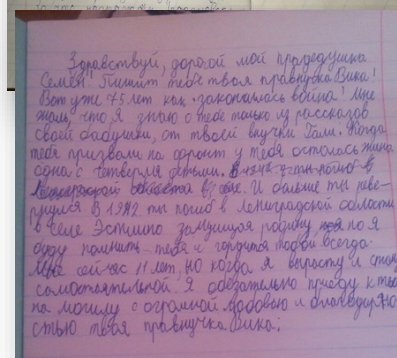 Здравствуй, дорогой мой прадедушка
Семён! Пишит тебе твоя правнучка Вика!
Вот уже 75 лет как закончилась война! Мне
жаль, что я знаю о тебе только из рассказов
своей бабушки, от твоей внучки Гали. Когда
тебя призвали на фронт у тебя осталась жена
одна с четверля детьми. В 1942 ты погиб в
области в селе. И больше ты неве-
рнулся В 1942 ты погиб в Ленинградской области
в селе Эстшино защищая родину но я
буду помнить тебя и гордится тобой всегда.
Мне сейчас 11 лет, но когда я вырасту и стану
самостоятельной я обязательно приеду к тебе
на могилу с огромной любовью и благодарно
стью твоя правнучка Вика;